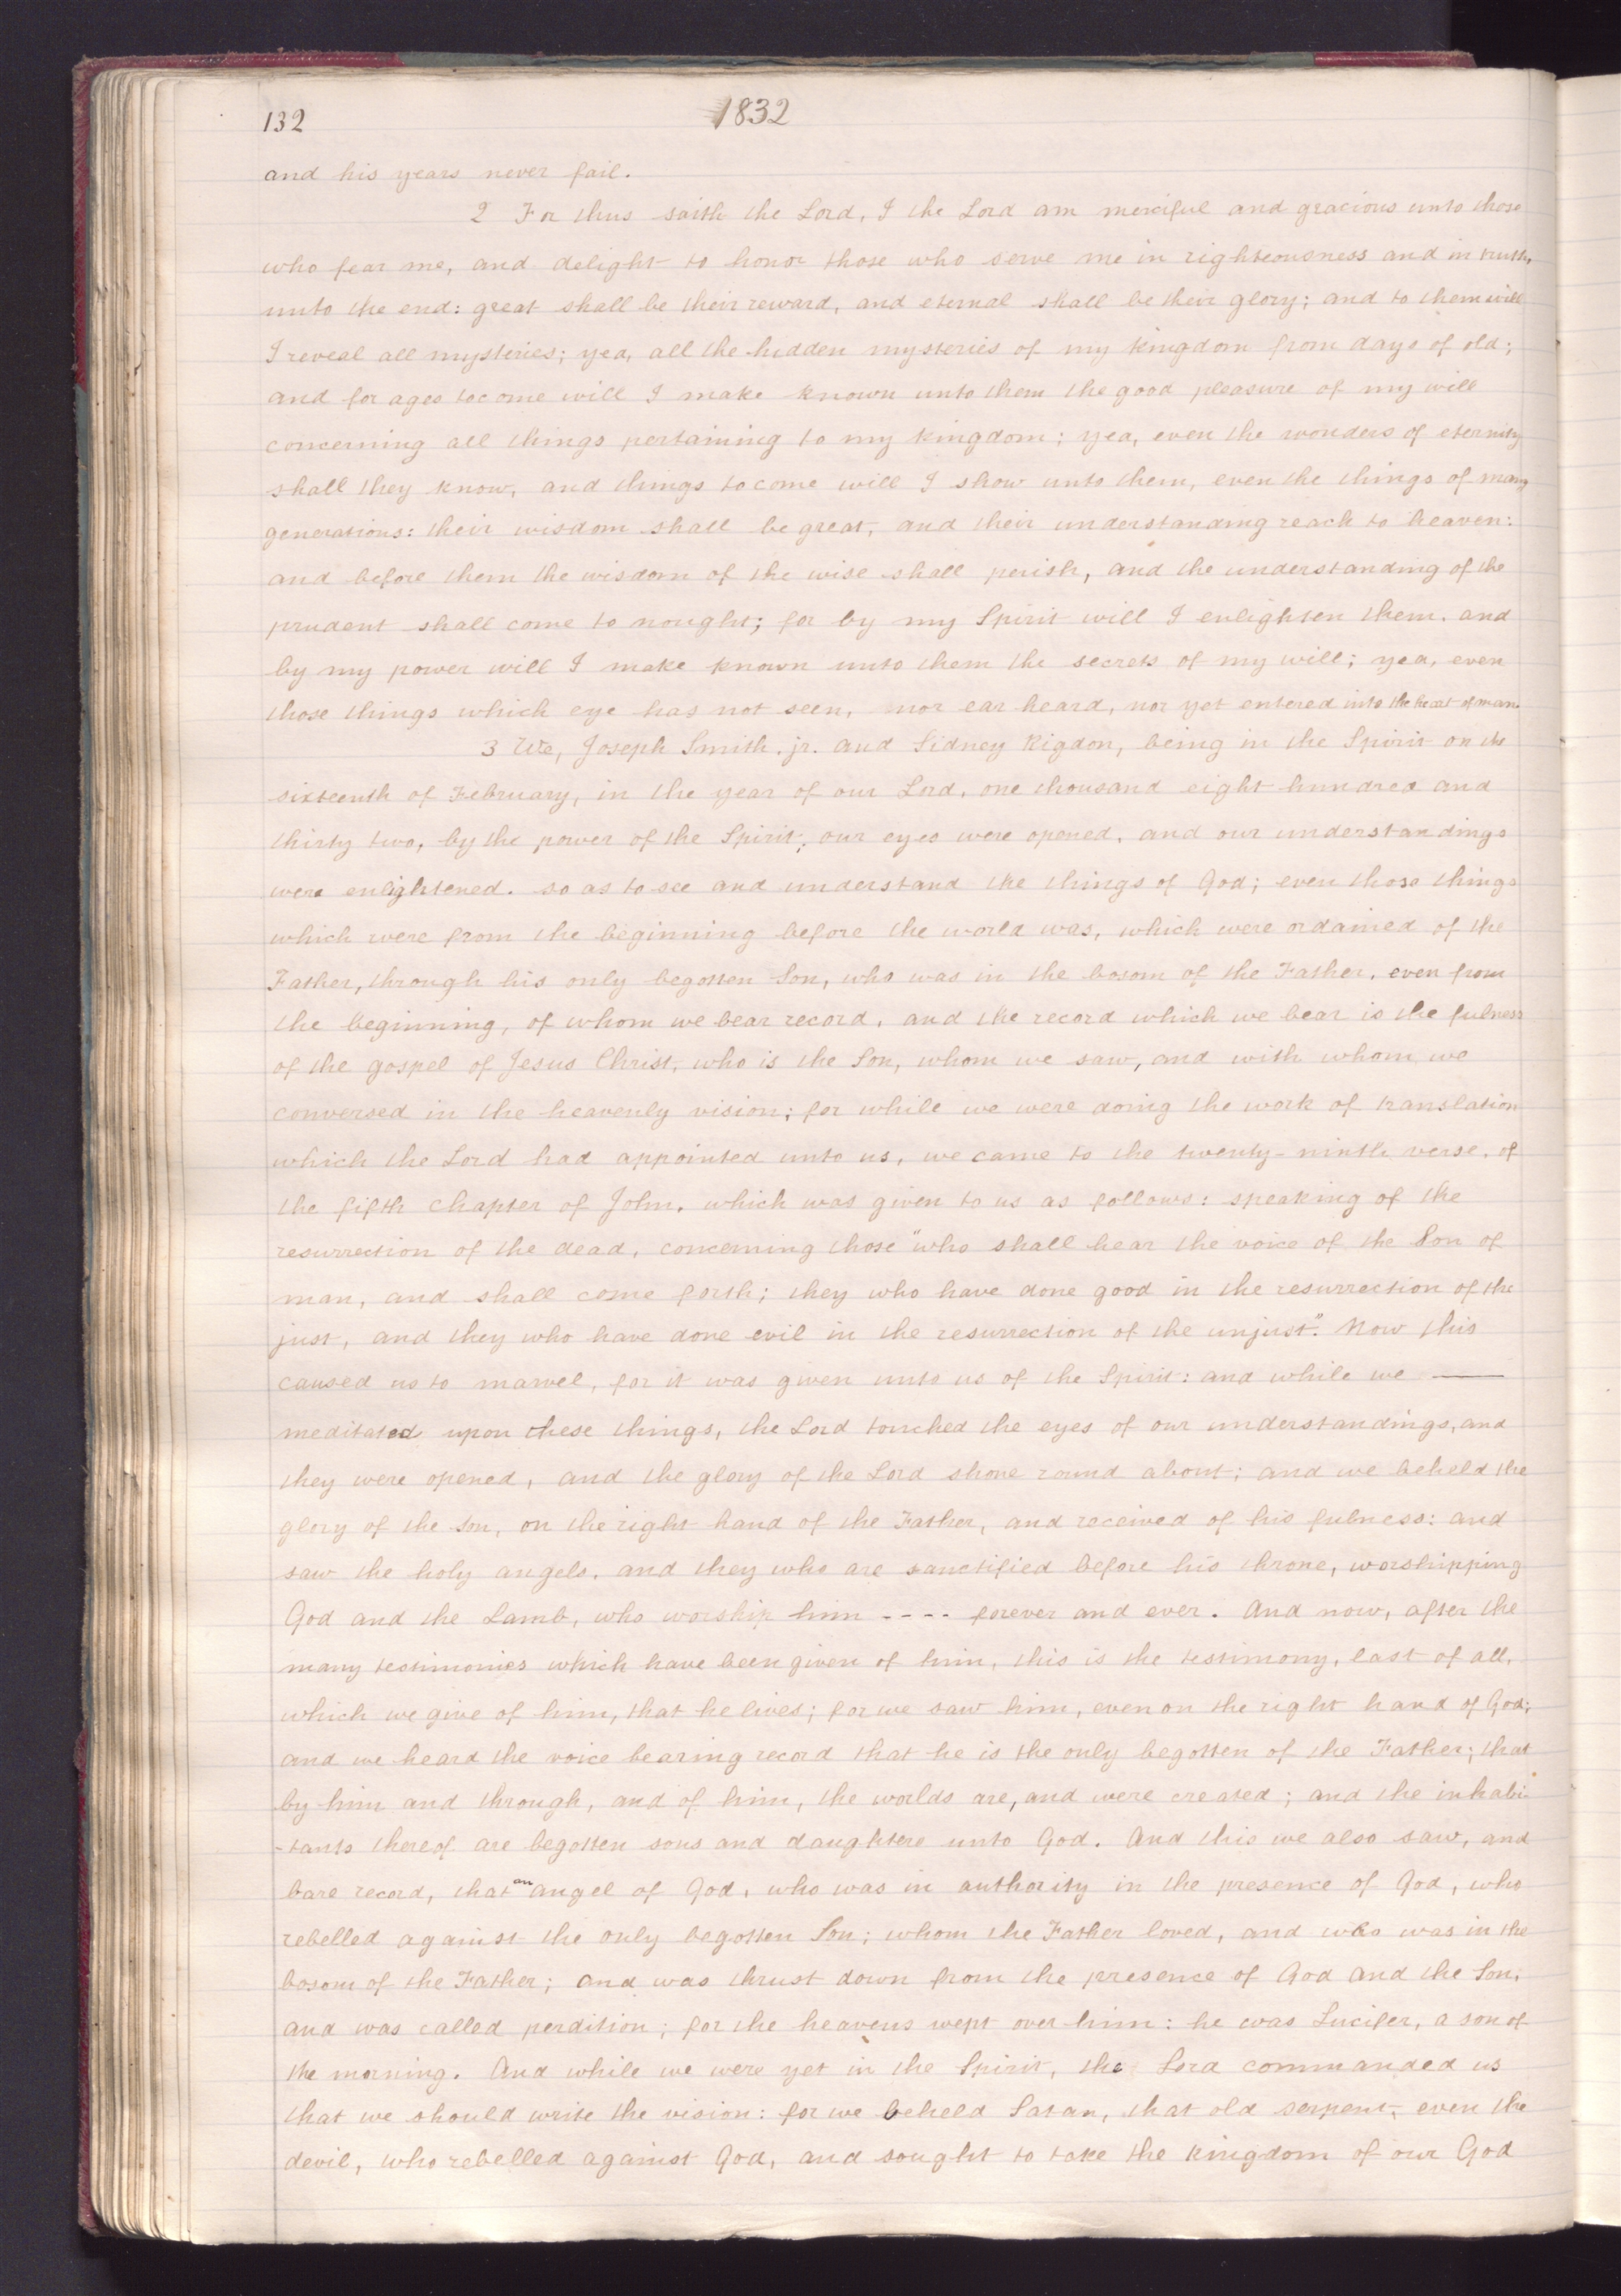 132
1832
and his years never fail.
2 For thus saith the Lord, I the Lord am merciful and gracious unto those
who fear me, and delight to honor those who serve me in righteousness and in truth,
unto the end: great shall be their reward, and eternal shall be their glory; and to them will
I reveal all mysteries; yea, all the hidden mysteries of my kingdom from days of old;
and for ages to come will I make known unto them the good pleasure of my will
concerning all things pertaining to my kingdom; yea, even the wonders of eternity
shall they know, and things to come will I show unto them, even the things of many
generations: their wisdom shall be great, and their understanding reach to heaven:
and before them the wisdom of the wise shall perish, and the understanding of the
prudent shall come to nought; for by my Spirit will I enlighten them. and
by my power will I make known unto them the secrets of my will; yea, even
those things which eye has not seen, nor ear heard, nor yet entered into the heart of man.
3 We, Joseph Smith. jr. and Sidney Rigdon, being in the Spirit on the
sixteenth of February, in the year of our Lord, one thousand eight hundred and
thirty two, by the power of the Spirit; our eyes were opened, and our understandings
were enlightened. so as to see and understand the things of God; even those things
which were from the beginning before the world was, which were ordained of the
Father, through his only begotten Son, who was in the bosom of the Father, even from
the beginning, of whom we bear record, and the record which we bear is the fulness
of the gospel of Jesus Christ, who is the Son, whom we saw, and with whom we
conversed in the heavenly vision; for while we were doing the work of translation
which the Lord had appointed unto us, we came to the twenty-ninth verse, of
the fifth chapter of John, which was given to us as follows: speaking of the
resurrection of the dead, concerning those "who shall hear the voice of the Son of
man, and shall come forth; they who have done good in the resurrection of the
just, and they who have done evil in the resurrection of the unjust." Now this
caused us to marvel, for it was given unto us of the Spirit: and while we ——
meditated upon these things, the Lord touched the eyes of our understandings, and
they were opened, and the glory of the Lord shone round about; and we beheld the
glory of the Son, on the right hand of the Father, and received of his fulness: and
saw the holy angels, and they who are sanctified before his throne, worshipping
God and the Lamb, who worship him ---- forever and ever. And now, after the
many testimonies which have been given of him, this is the testimony, last of all,
which we give of him, that he lives; for we saw him, even on the right hand of God;
and we heard the voice bearing record that he is the only begotten of the Father; that
by him and through, and of him, the worlds are, and were created; and the inhabi-
-tants thereof are begotten sons and daughters unto God. And this we also saw, and
bare record, that an angel of God, who was in authority in the presence of God, who
rebelled against the only begotten Son; whom the Father loved, and who was in the
bosom of the Father; and was thrust down from the presence of God and the Son,
and was called perdition; for the heavens wept over him: he was Lucifer, a son of
the morning. And while we were yet in the Spirit, the Lord commanded us
that we should write the vision: for we beheld Satan, that old serpent, even the
devil, who rebelled against God, and sought to take the kingdom of our God